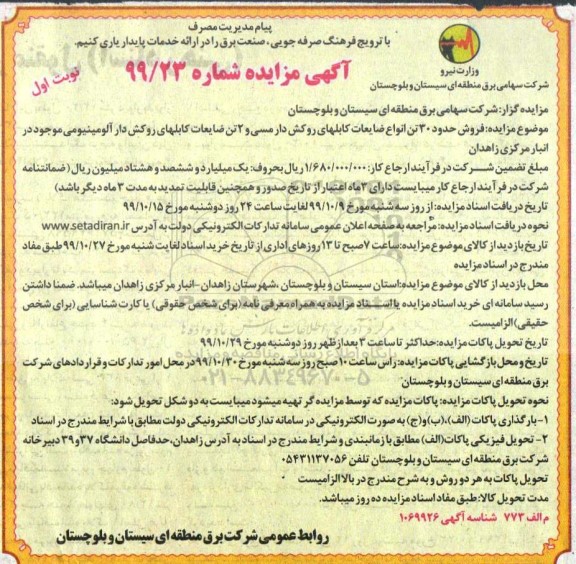 پیام مدیریت مصرف
با ترویج فرهنگ صرفه جویی، صنعت برق را در ارائه خدمات پایدار یاری کنیم.
وزارت نیرو
شرکت سهامی برق منطقه ای سیستان و بلوچستان
آگهی مزایده شماره ۹۹/۲۳
نوبت اول
مزایده گزار: شرکت سهامی برق منطقه ای سیستان و بلوچستان
موضوع مزایده: فروش حدود ۳۰ تن انواع ضایعات کابلهای روکش دار مسی و ۲ تن ضایعات کابلهای روکش دار آلومینیومی موجود در
انبار مرکزی زاهدان
مبلغ تضمین شرکت در فرآیند ارجاع کار: ۱/۶۸۰/۰۰۰/۰۰۰ ریال بحروف: یک میلیارد و ششصد و هشتاد میلیون ریال (ضمانتنامه
شرکت در فرآیند ارجاع کار میبایست دارای ۳ ماه اعتبار از تاریخ صدور و همچنین قابلیت تمدید به مدت ۳ ماه دیگر باشد)
تاریخ دریافت اسناد مزایده: از روز سه شنبه مورخ ۹۹/۱۰/۹ لغایت ساعت ۲۴ روز دوشنبه مورخ ۹۹/۱۰/۱۵
نحوه دریافت اسناد مزایده: مراجعه به صفحه اعلان عمومی سامانه تدارکات الکترونیکی دولت به آدرس www.setadiran.ir
تاریخ بازدید از کالای موضوع مزایده: ساعت ۷ صبح تا ۱۳ روزهای اداری از تاریخ خرید اسناد لغایت شنبه مورخ ۹۹/۱۰/۲۷ طبق مفاد
مندرج در اسناد مزایده
محل بازدید از کالای موضوع مزایده: استان سیستان و بلوچستان، شهرستان زاهدان - انبار مرکزی زاهدان میباشد. ضمنا داشتن
رسید سامانه ای خرید اسناد مزایده یا اسناد مزایده به همراه معرفی نامه (برای شخص حقوقی) یا کارت شناسایی (برای شخص
حقیقی) الزامیست.
تاریخ تحویل پاکات مزایده: حداکثر تا ساعت ۳ بعد از ظهر روز دوشنبه مورخ ۹۹/۱۰/۲۹
تاریخ و محل بازگشایی پاکات مزایده: راس ساعت ۱۰ صبح روز سه شنبه مورخ ۹۹/۱۰/۳۰ در محل امور تدارکات و قراردادهای شرکت
برق منطقه ای سیستان و بلوچستان
نحوه تحویل پاکات مزایده: پاکات مزایده که توسط مزایده گر تهیه میشود میبایست به دو شکل تحویل شود:
۱- بارگذاری پاکات (الف)، (ب) و (ج) به صورت الکترونیکی در سامانه تدارکات الکترونیکی دولت مطابق با شرایط مندرج در اسناد
۲- تحویل فیزیکی پاکات (الف) مطابق با زمانبندی و شرایط مندرج در اسناد به آدرس زاهدان، حدفاصل دانشگاه ۳۷ و ۳۹ دبیرخانه
شرکت برق منطقه ای سیستان و بلوچستان تلفن ۰۵۴۳۱۱۳۷۰۵۶
تحویل پاکات به هر دو روش و به شرح مندرج در بالا الزامیست
مدت تحویل کالا: طبق مفاد اسناد مزایده ده روز میباشد.
م الف ۷۷۳ شناسه آگهی ۱۰۶۹۹۲۶
روابط عمومی شرکت برق منطقه ای سیستان و بلوچستان
۰۲۱-۸۸۳۴۹۶۷۰-۵